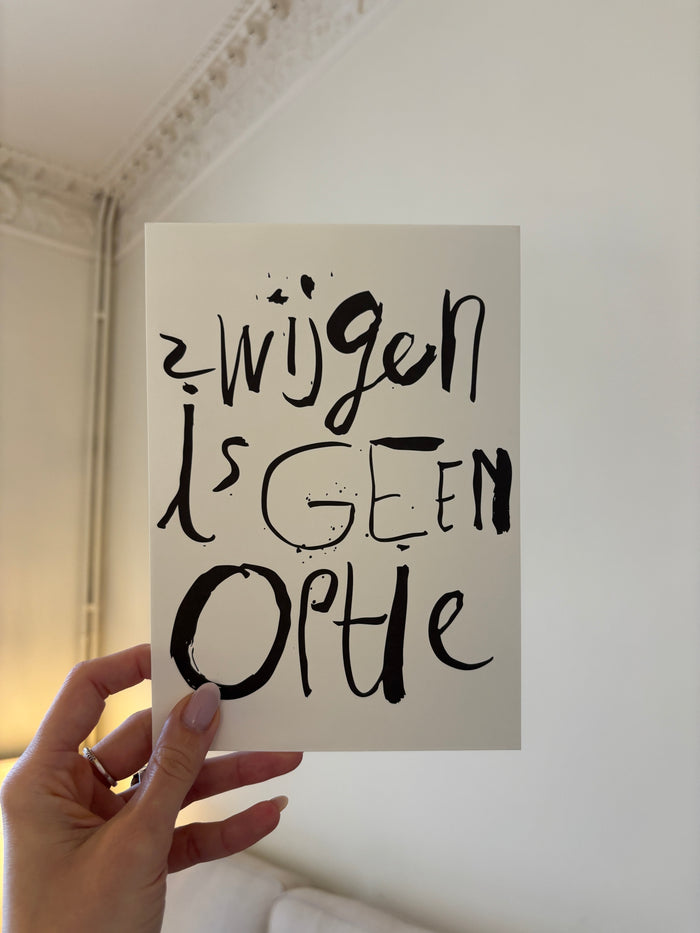 zwijgen
is GEEN
OPtIe